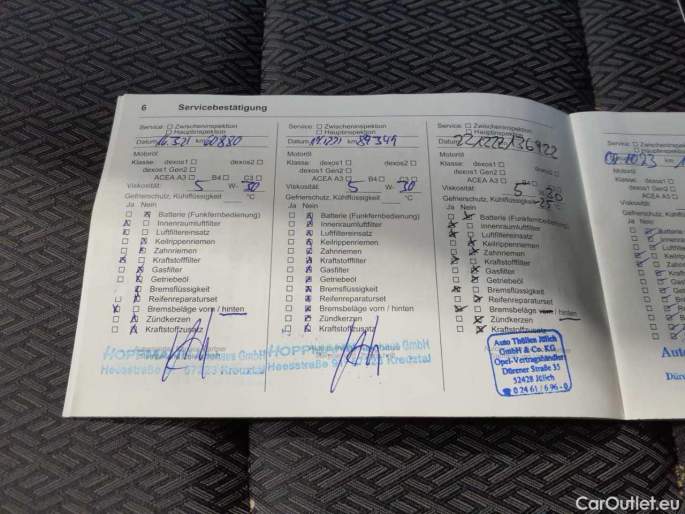 6 Servicebestätigung
Service: Zwischeninspektion
Hauptinspektion
Datum 16.3.21 km 60880
Motoröl
Klasse: dexos1 dexos2
dexos1 Gen2
ACEA A3 B4 C3
Viskosität: 5 W- 30
Gefrierschutz, Kühlflüssigkeit °C
Ja Nein
Batterie (Funkfernbedienung)
Innenraumluftfilter
Luftfiltereinsatz
Keilrippenriemen
Zahnriemen
Kraftstofffilter
Gasfilter
Getriebeöl
Bremsflüssigkeit
Reifenreparaturset
Bremsbeläge vorn / hinten
Zündkerzen
Kraftstoffzusatz
HOPPMANN Autohaus GmbH
Heesstraße 57223 Kreuztal
Service: Zwischeninspektion
Hauptinspektion
Datum km 89349
Motoröl
Klasse: dexos1 dexos2
dexos1 Gen2
ACEA A3 B4 C3
Viskosität: 5 W- 30
Gefrierschutz, Kühlflüssigkeit °C
Ja Nein
Batterie (Funkfernbedienung)
Innenraumluftfilter
Luftfiltereinsatz
Keilrippenriemen
Zahnriemen
Kraftstofffilter
Gasfilter
Getriebeöl
Bremsflüssigkeit
Reifenreparaturset
Bremsbeläge vorn / hinten
Zündkerzen
Kraftstoffzusatz
HOPPMANN Autohaus GmbH
Heesstraße 57223 Kreuztal
Service: Zwischeninspektion
Hauptinspektion
Datum 136922
Motoröl
Klasse: dexos1 dexos2
dexos1 Gen2
ACEA A3 B4 C3
Viskosität: 5 W- 20
Gefrierschutz, Kühlflüssigkeit -25 °C
Ja Nein
Batterie (Funkfernbedienung)
Innenraumluftfilter
Luftfiltereinsatz
Keilrippenriemen
Zahnriemen
Kraftstofffilter
Gasfilter
Getriebeöl
Bremsflüssigkeit
Reifenreparaturset
Bremsbeläge vorn / hinten
Zündkerzen
Kraftstoffzusatz
Auto Thüllen Jülich
GmbH & Co. KG
Opel-Vertragshändler
Dürener Straße 35
52428 Jülich
0 24 61 / 6 96-0
Service:
Datum 10 23
Motoröl
Klasse: dexos1
dexos1 Gen2
ACEA A3
Viskosität:
Gefrierschutz, Kühl
Ja Nein
Batterie
Innenra
Luftfilte
Keilripp
Zahnri
Krafts
Gasfilt
Getri
Bre
Auto
Düre
CarOutlet.eu